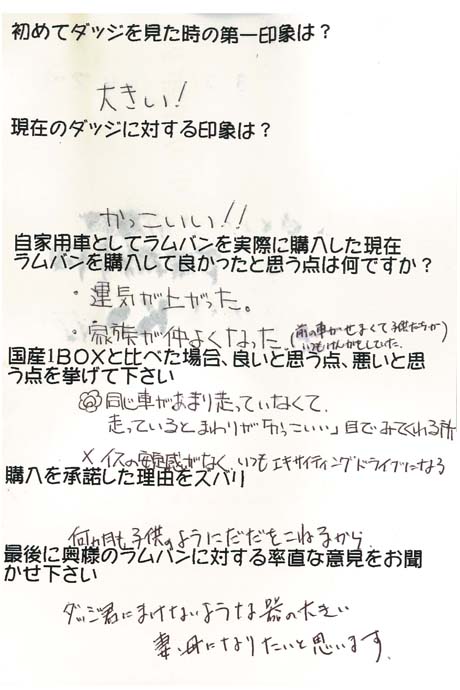 初めてダッジを見た時の第一印象は？
大きい！
現在のダッジに対する印象は？
かっこいい！！
自家用車としてラムバンを実際に購入した現在
ラムバンを購入して良かったと思う点は何ですか？
・運気が上がった。
・家族が仲よくなった。（前の車がせまくて子供たちが
いつもけんかをしていた。
国産1BOXと比べた場合、良いと思う点、悪いと思
う点を挙げて下さい
◎同じ車があまり走っていなくて、
走っているとまわりが「かっこいい」目でみてくれる所
×イスの安定感がなく、いつもエキサイティングドライブになる
購入を承諾した理由をズバリ
何ヵ月も子供のようにだだをこねるから
最後に奥様のラムバンに対する率直な意見をお聞
かせ下さい
ダッジ君にまけないような器の大きい
妻、母になりたいと思います。